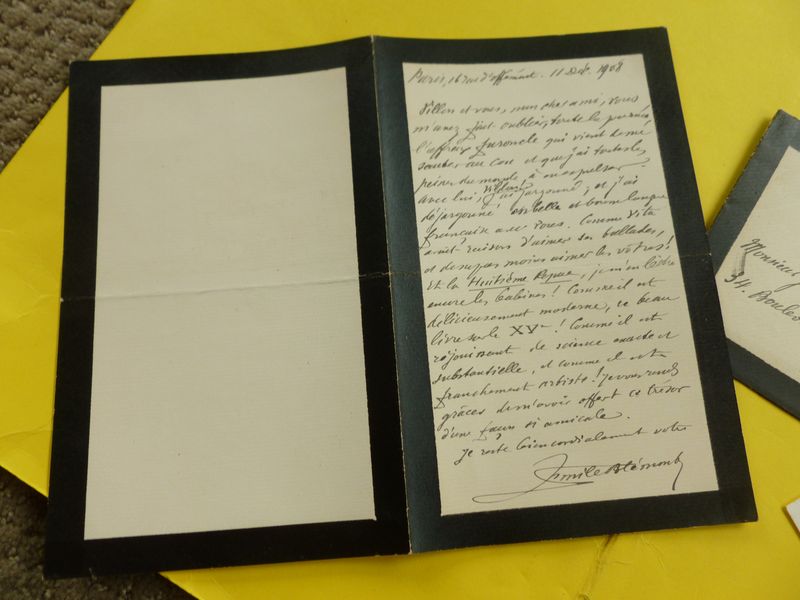 Paris, 16 rue d'offémont. 11 Déc. 1908
Villon et vous, mon cher ami, vous
m'avez fait oublier, toute la journée,
l'affreux furoncle qui vient de me
sauter au cou et que j'ai toutes les
peines du monde à en expulser
avec lui, j'ai jargonné, et j'ai
déjargonné en belle et bonne langue
française avec vous. Comme
raison d'aimer ses ballades,
et de ne pas moins aimer les vôtres!
Et la Huitième Repue, je m'en lèche
encore les babines! Comme il est
délicieusement moderne, ce beau
livre sur le XVe! Comme il est
réjouissant de science exacte et
substantielle, et comme il est
franchement artiste! Je vous rends
grâces de m'avoir offert ce trésor
d'une façon si amicale.
Je reste bien cordialement votre
Émile Blémont
Monsieur
34. Boulev